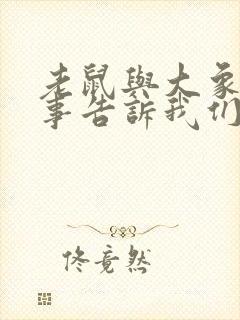 老鼠與大象
事告訴我们
佟竟然